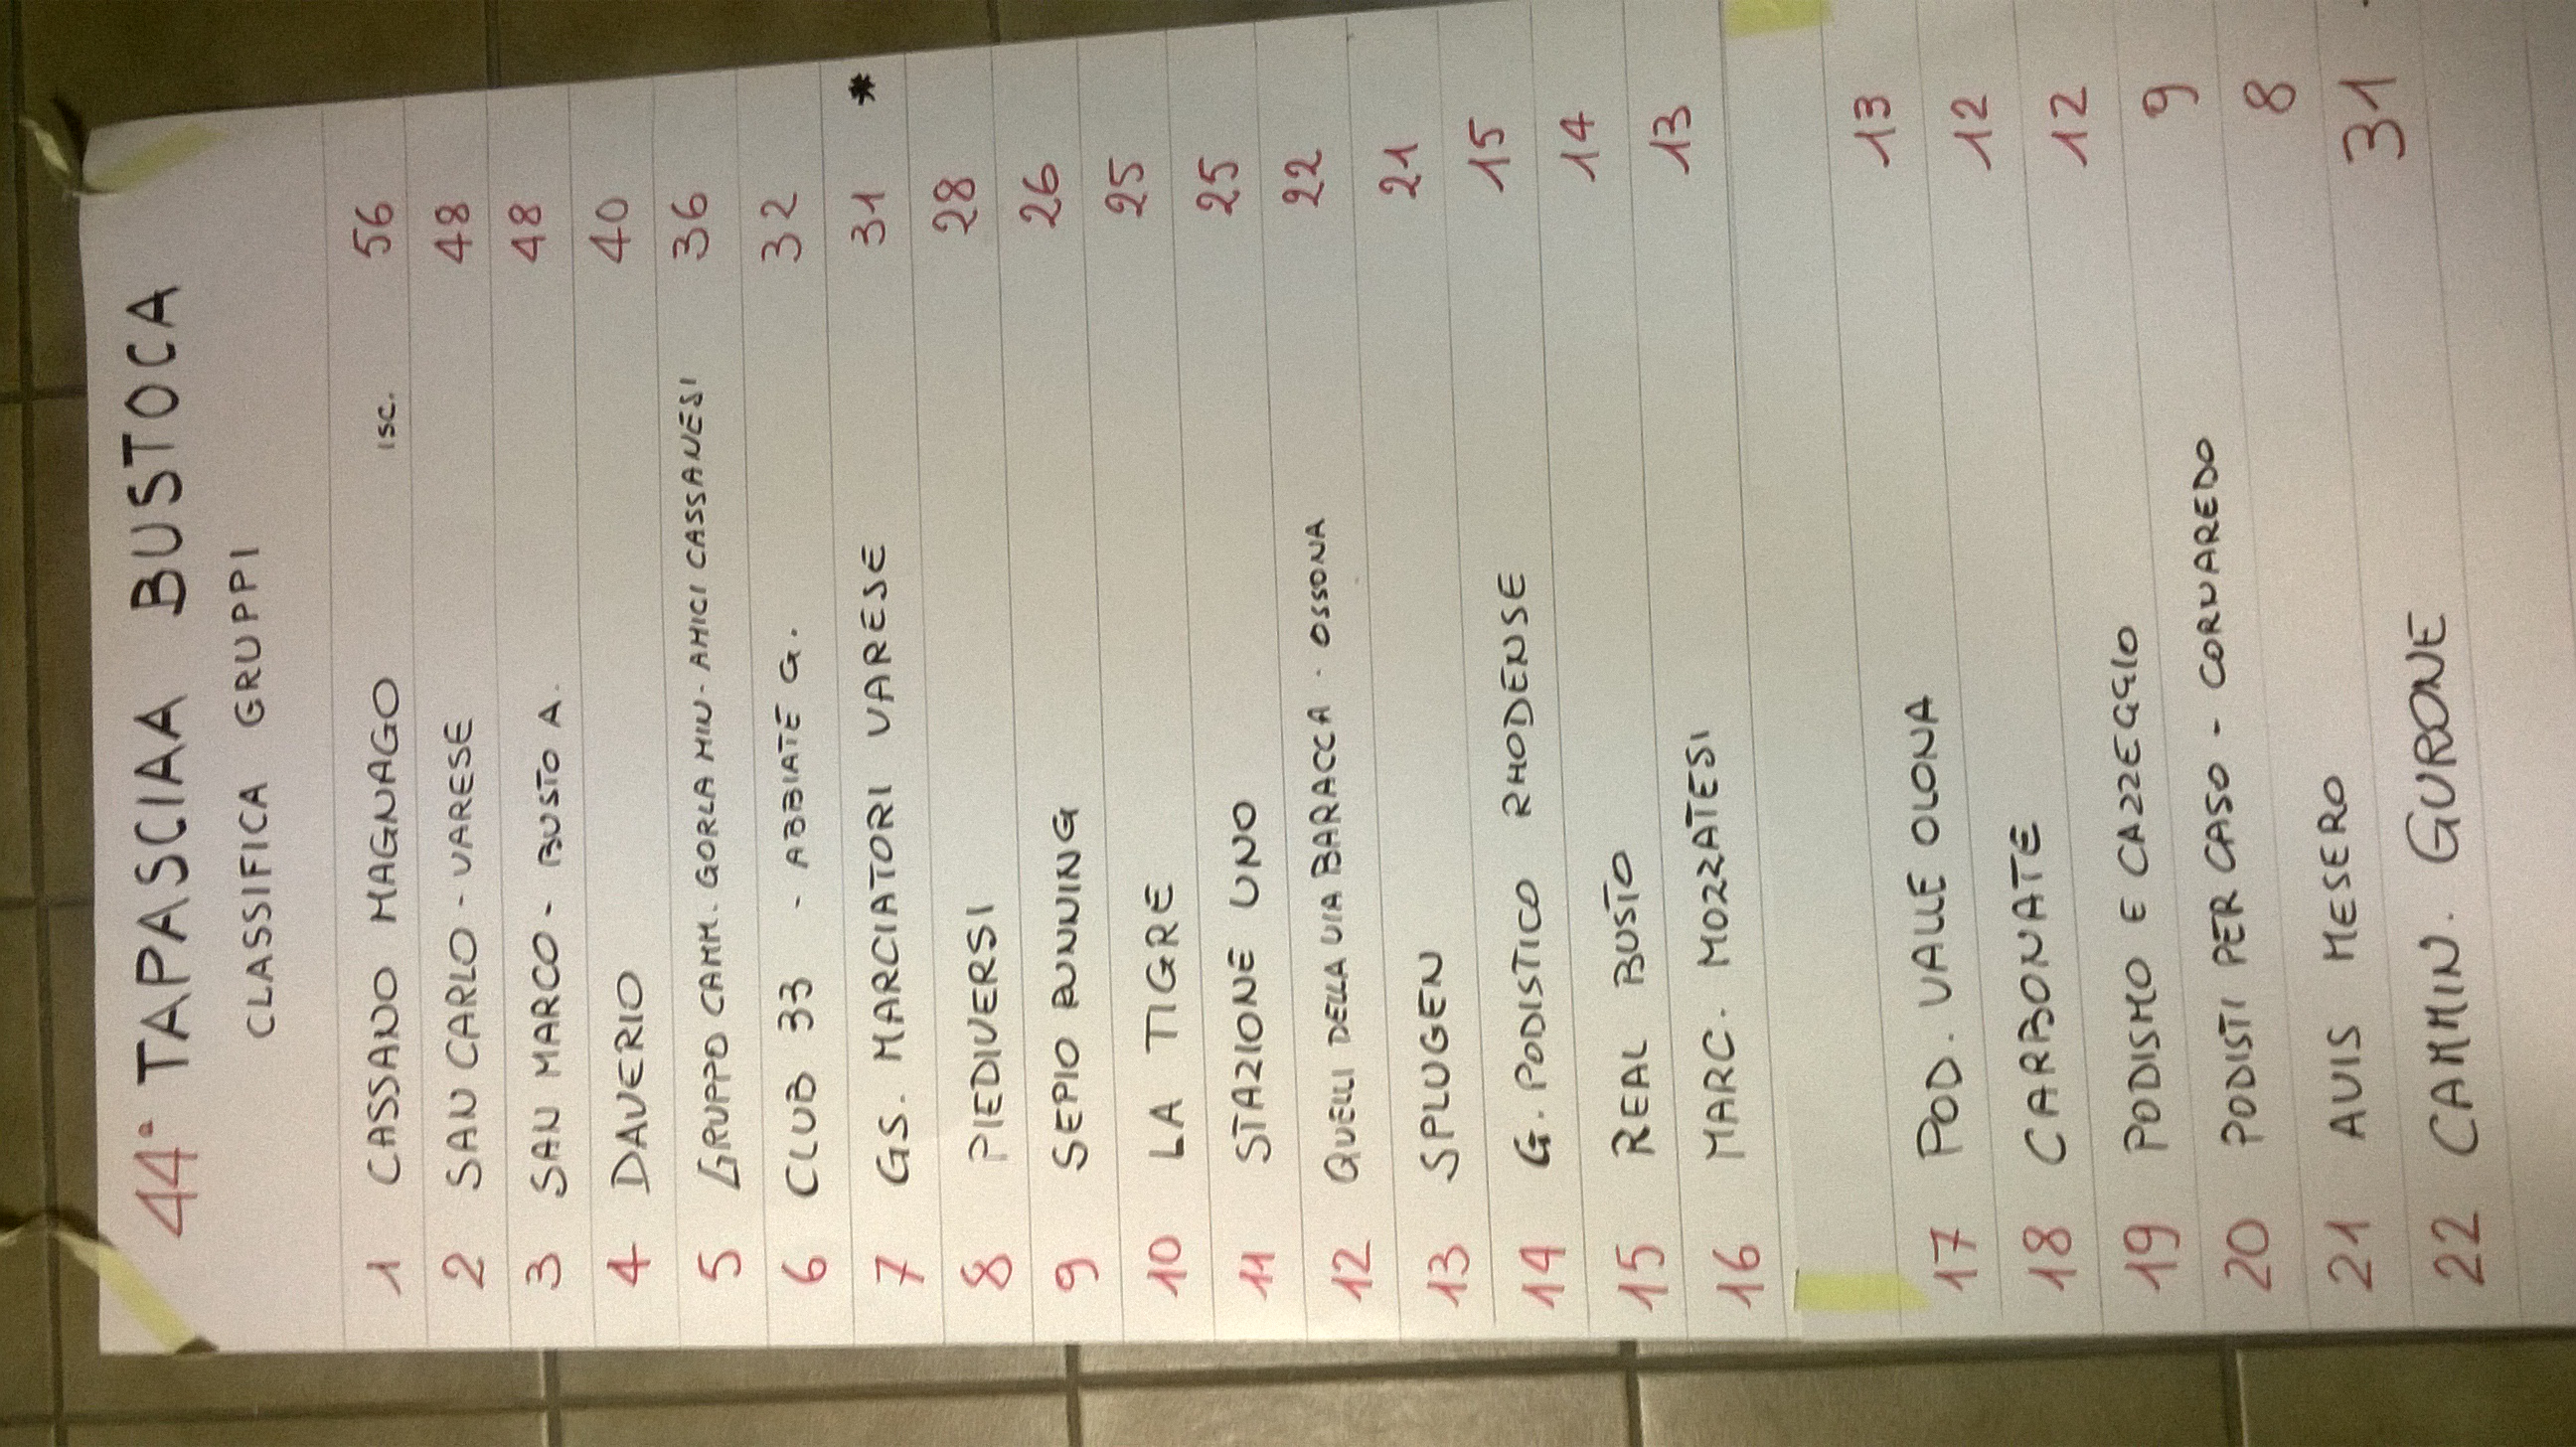 44ª TAPASCIAA BUSTOCA
CLASSIFICA GRUPPI
1 CASSANO MAGNAGO ISC. 56
2 SAN CARLO - VARESE 48
3 SAN MARCO - BUSTO A. 48
4 DAVERIO 40
5 GRUPPO CAMM. GORLA MIN. - AMICI CASSANESI 36
6 CLUB 33 - ABBIATE G. 32
7 GS. MARCIATORI VARESE 31 *
8 PIEDIVERSI 28
9 SEPIO RUNNING 26
10 LA TIGRE 25
11 STAZIONE UNO 25
12 QUELLI DELLA VIA BARACCA - OSSONA 22
13 SPLUGEN 21
14 G. PODISTICO RHODENSE 15
15 REAL BUSTO 14
16 MARC. MOZZATESI 13
17 POD. VALLE OLONA 13
18 CARBONATE 12
19 PODISMO E CAZZEGGIO 12
20 PODISTI PER CASO - CORNAREDO 9
21 AVIS MESERO 8
22 CAMMIN. GURONE 31